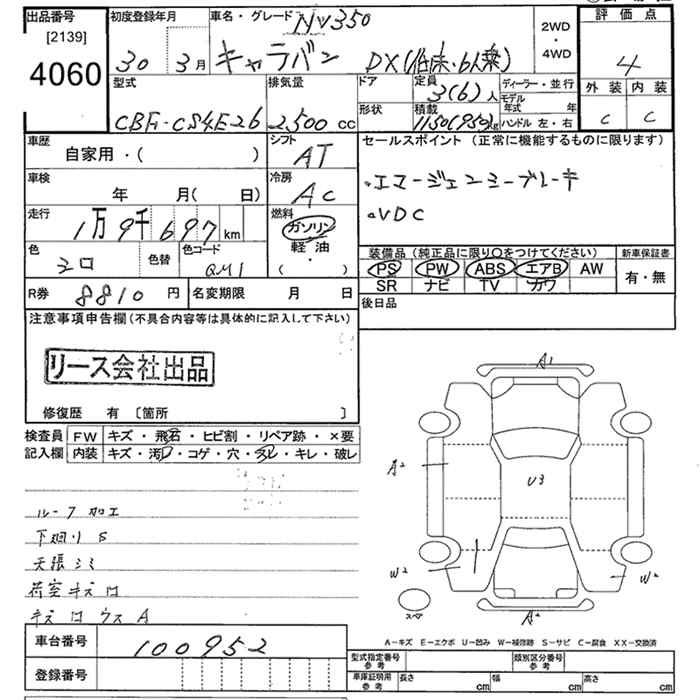 出品番号 初度登録年月 車名・グレード NV350 2WD 評価点
[2139] 30年 3月 キャラバン DX(低床・6人乗) ・ 4WD 4
4060
型式 排気量 ドア 定員 3(6)人 ディーラー・並行 外装 内装
CBF-CS4E26 2,500cc 形状 積載 1150(950)kg モデル年式 年 ハンドル 左・右 C C
車歴 自家用・( ) シフト AT セールスポイント (正常に機能するものに限ります)
車検 年 月( 日) 冷房 AC ・エマージェンシーブレーキ
走行 1万9千697km 燃料 ガソリン 軽油 ( ・ ) ・VDC
色 シロ 色替 色コード QM1
装備品(純正品に限り○をつけてください) 新車保証書
PS PW ABS エアB AW 有・無
SR ナビ TV カワ
R券 8810円 名変期限 月 日 後日品
注意事項申告欄(不具合内容等は具体的に記入して下さい)
リース会社出品
修復歴 有 〔箇所 〕
検査員 FW キズ・飛石・ヒビ割・リペア跡・×要
記入欄 内装 キズ・汚レ・コゲ・穴・スレ・キレ・破レ
ルーフ加工
下廻り S
天張シミ
荷室キズ凹
キズ凹ウス A
A1
A2
U3
W2
W2
スペア
A2
A-キズ E-エクボ U-凹み W-補修跡 S-サビ C-腐食 XX-交換済
車台番号 100952
登録番号
型式指定番号 参考 類別区分番号 参考
車庫証明用 参考 長さ cm 幅 cm 高さ cm